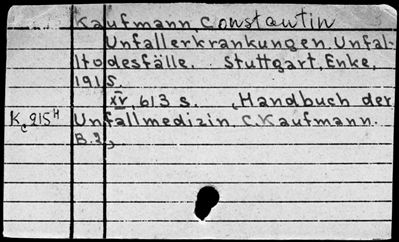 Kaufmann, Constantin
Unfallerkrankungen. Unfal-
ltodesfälle. Stuttgart, Enke,
1915.
XV, 613 s. (Handbuch der
Kc 215H Unfallmedizin. C. Kaufmann.
B.2)